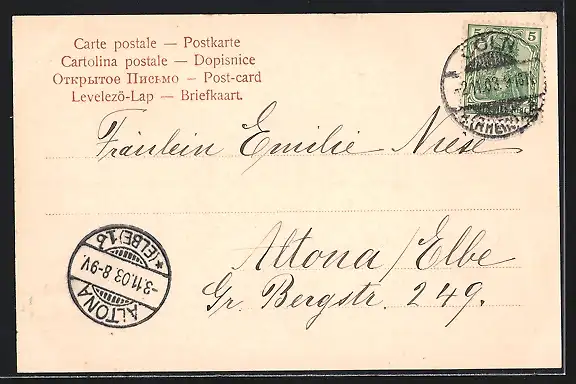 Carte postale — Postkarte
Cartolina postale — Dopisnice
Открытое Письмо — Post-card
Levelezö-Lap — Briefkaart.
5 5
CÖLN
2.11.03.
(RHEIN)
Fräulein Emilie Niese
Altona/Elbe
Gr. Bergstr. 249.
ALTONA
-3.11.03 8-9V
*(ELBE)1.